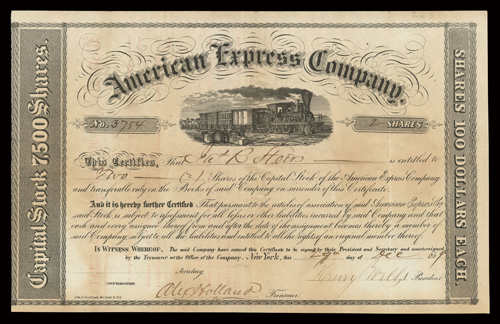 American Express Company.
No. 3754
2 SHARES
Capital Stock 7500 Shares.
SHARES 100 DOLLARS EACH.
This Certifies, That Jas R Stow is entitled to
Two Shares of the Capital Stock of the American Express Company
and transferable only on the Books of said Company on surrender of this Certificate.
And it is hereby further Certified That pursuant to the articles of association of said American Express Co
said Stock is subject to assessment for all losses or other liabilities incurred by said Company and that
each and every assignee thereof from and after the date of the assignment becomes thereby a member of
said Company subject to all the liabilities and entitled to all the rights of an original member thereof.
IN WITNESS WHEREOF, The said Company have caused this Certificate to be signed by their President and Secretary and countersigned
by the Treasurer at the Office of the Company. New York, this day of Dec 1859
Henry Wells President
Secretary
COUNTERSIGNED.
Alex Holland Treasurer